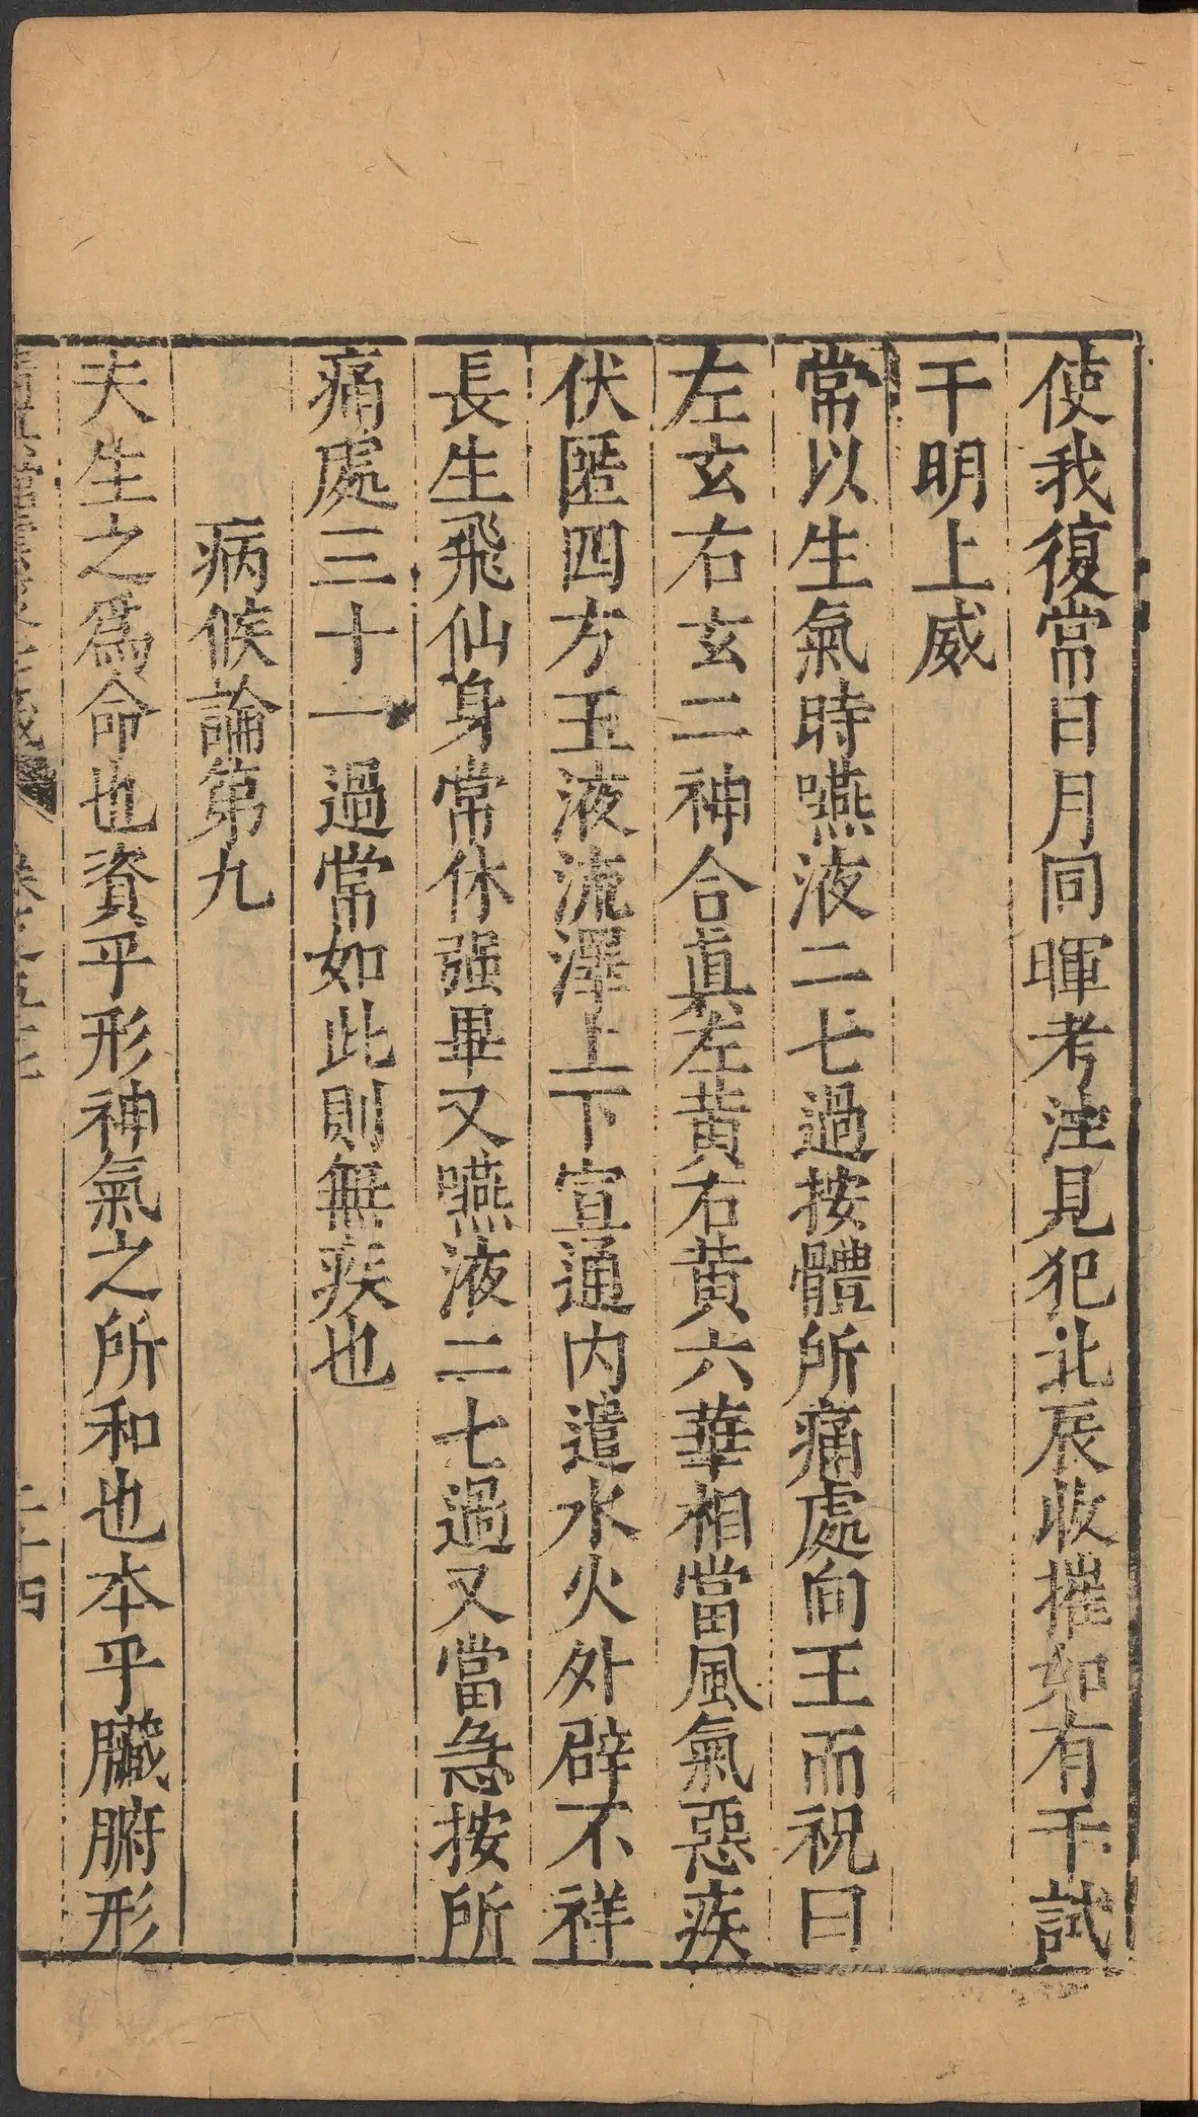 使我復常日月同暉考注見犯北辰收摧如有干試
干明上威
常以生氣時嚥液二七過按體所痛處向王而祝曰
左玄右玄二神合真左黄右黄六華相當風氣惡疾
伏匿四方玉液流澤上下宣通内遣水火外辟不祥
長生飛仙身常休强畢又嚥液二七過又當急按所
痛處三十一過常如此則無疾也
病候論第九
夫生之爲命也資乎形神氣之所和也本乎臟腑形